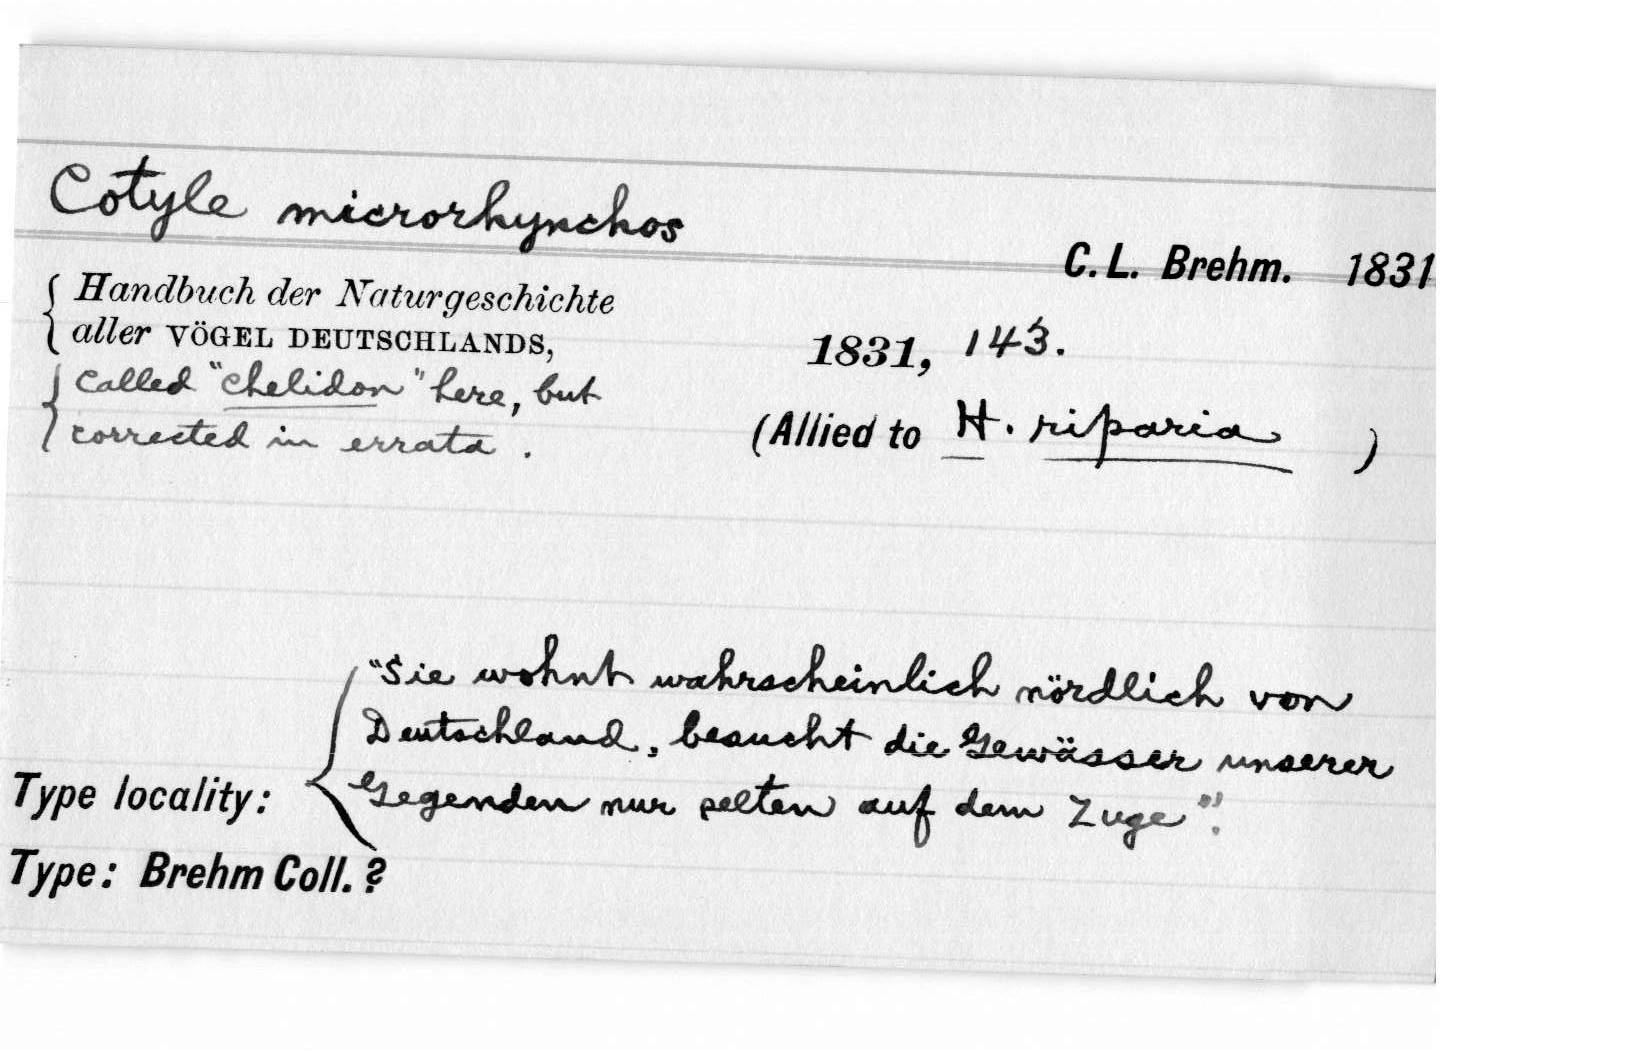 Cotyle microrhynchos
C. L. Brehm. 1831
Handbuch der Naturgeschichte
aller VÖGEL DEUTSCHLANDS,
1831, 143.
called "chelidon" here, but
corrected in errata.
(Allied to H. riparia )
"Sie wohnt wahrscheinlich nördlich von
Deutschland, besucht die Gewässer unserer
Type locality: Gegenden nur selten auf dem Zuge".
Type: Brehm Coll. ?